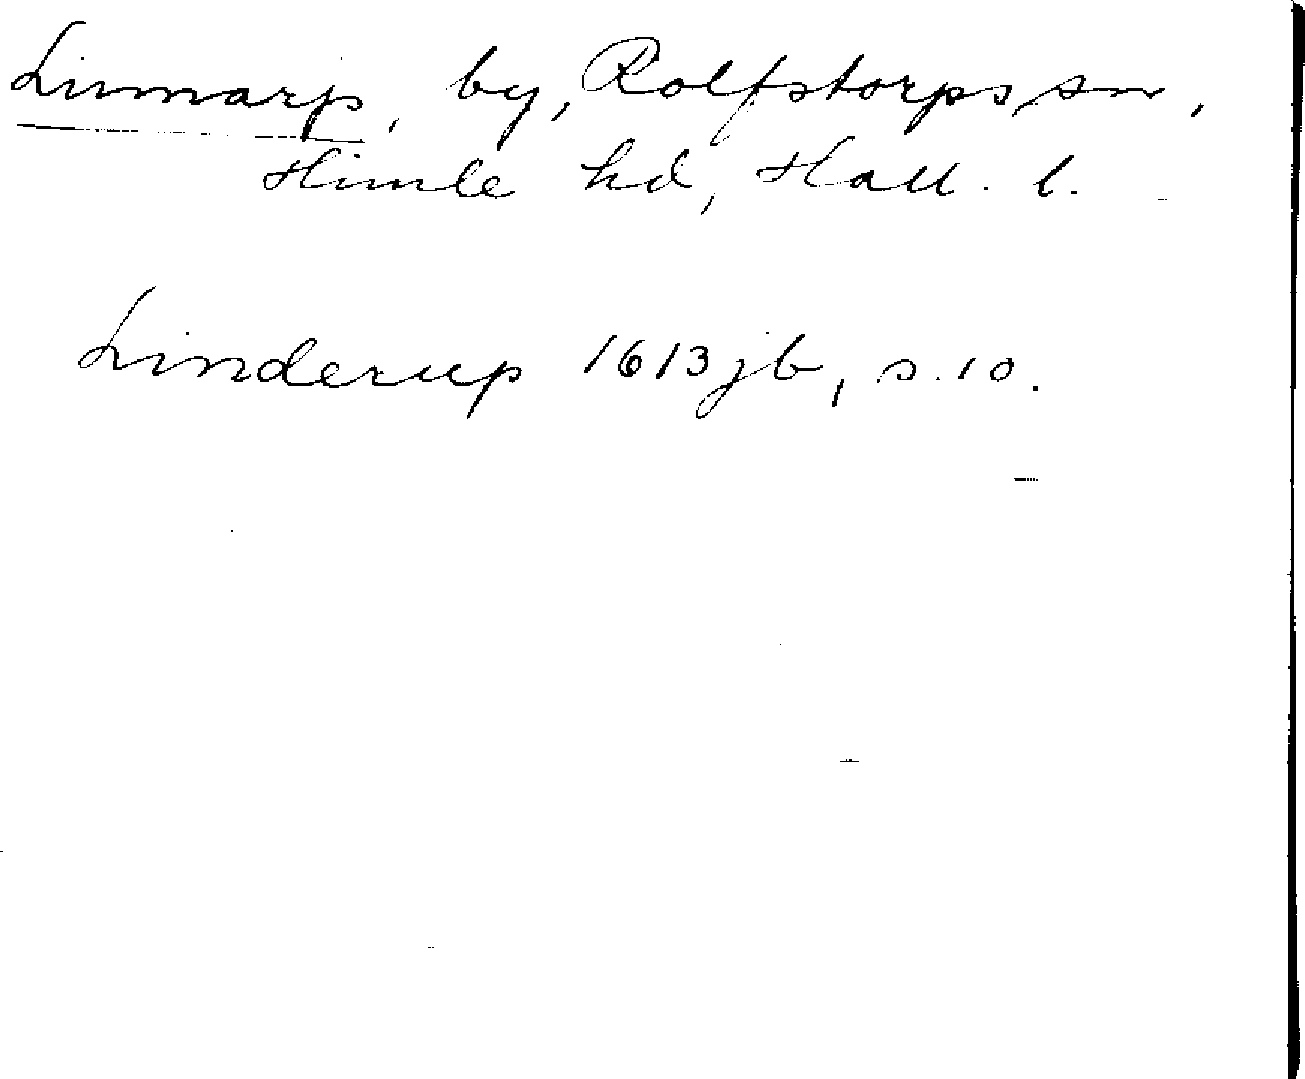 Linnarp, by, Rolfstorps sn,
Himle hd, Hall. l.
Linderup 1613 jb, s. 10.